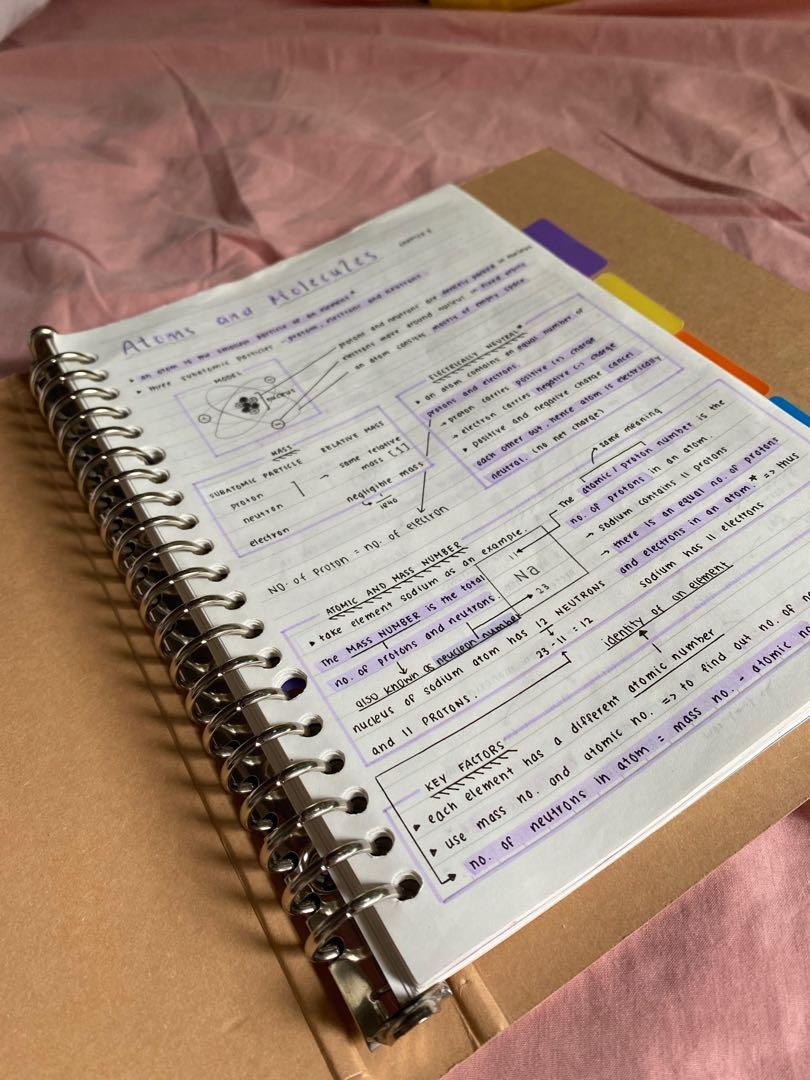 Atoms and Molecules
CHAPTER 2
▸ an atom is the smallest particle of an element*
▸ three subatomic particles → protons, electrons and neutrons.
MODEL
NUCLEUS
protons and neutrons are densely packed in nucleus
electrons move around nucleus in fixed orbits
an atom consists mostly of empty space
ELECTRICALLY NEUTRAL*
▸ an atom contains an equal number of
protons and electrons
→ proton carries positive (+) charge
→ electron carries negative (-) charge
▸ positive and negative charge cancel
each other out. hence atom is electrically
neutral. (no net charge)
MASS
SUBATOMIC PARTICLE RELATIVE MASS
proton
neutron
→ same relative
mass [1]
electron
negligible mass
1/1840
NO. of Proton = no. of electron
ATOMIC AND MASS NUMBER
▸ take element sodium as an example.
11
Na
23
the MASS NUMBER is the total
no. of protons and neutrons.
also known as neucleon number
nucleus of sodium atom has 12 NEUTRONS
23 - 11 = 12
and 11 PROTONS.
same meaning
the atomic / proton number is the
no. of protons in an atom.
→ sodium contains 11 protons
→ there is an equal no. of protons
and electrons in an atom.* => thus
sodium has 11 electrons
identity of an element
KEY FACTORS
▸ each element has a different atomic number
▸ use mass no. and atomic no. => to find out no. of
no. of neutrons in atom = mass no. - atomic